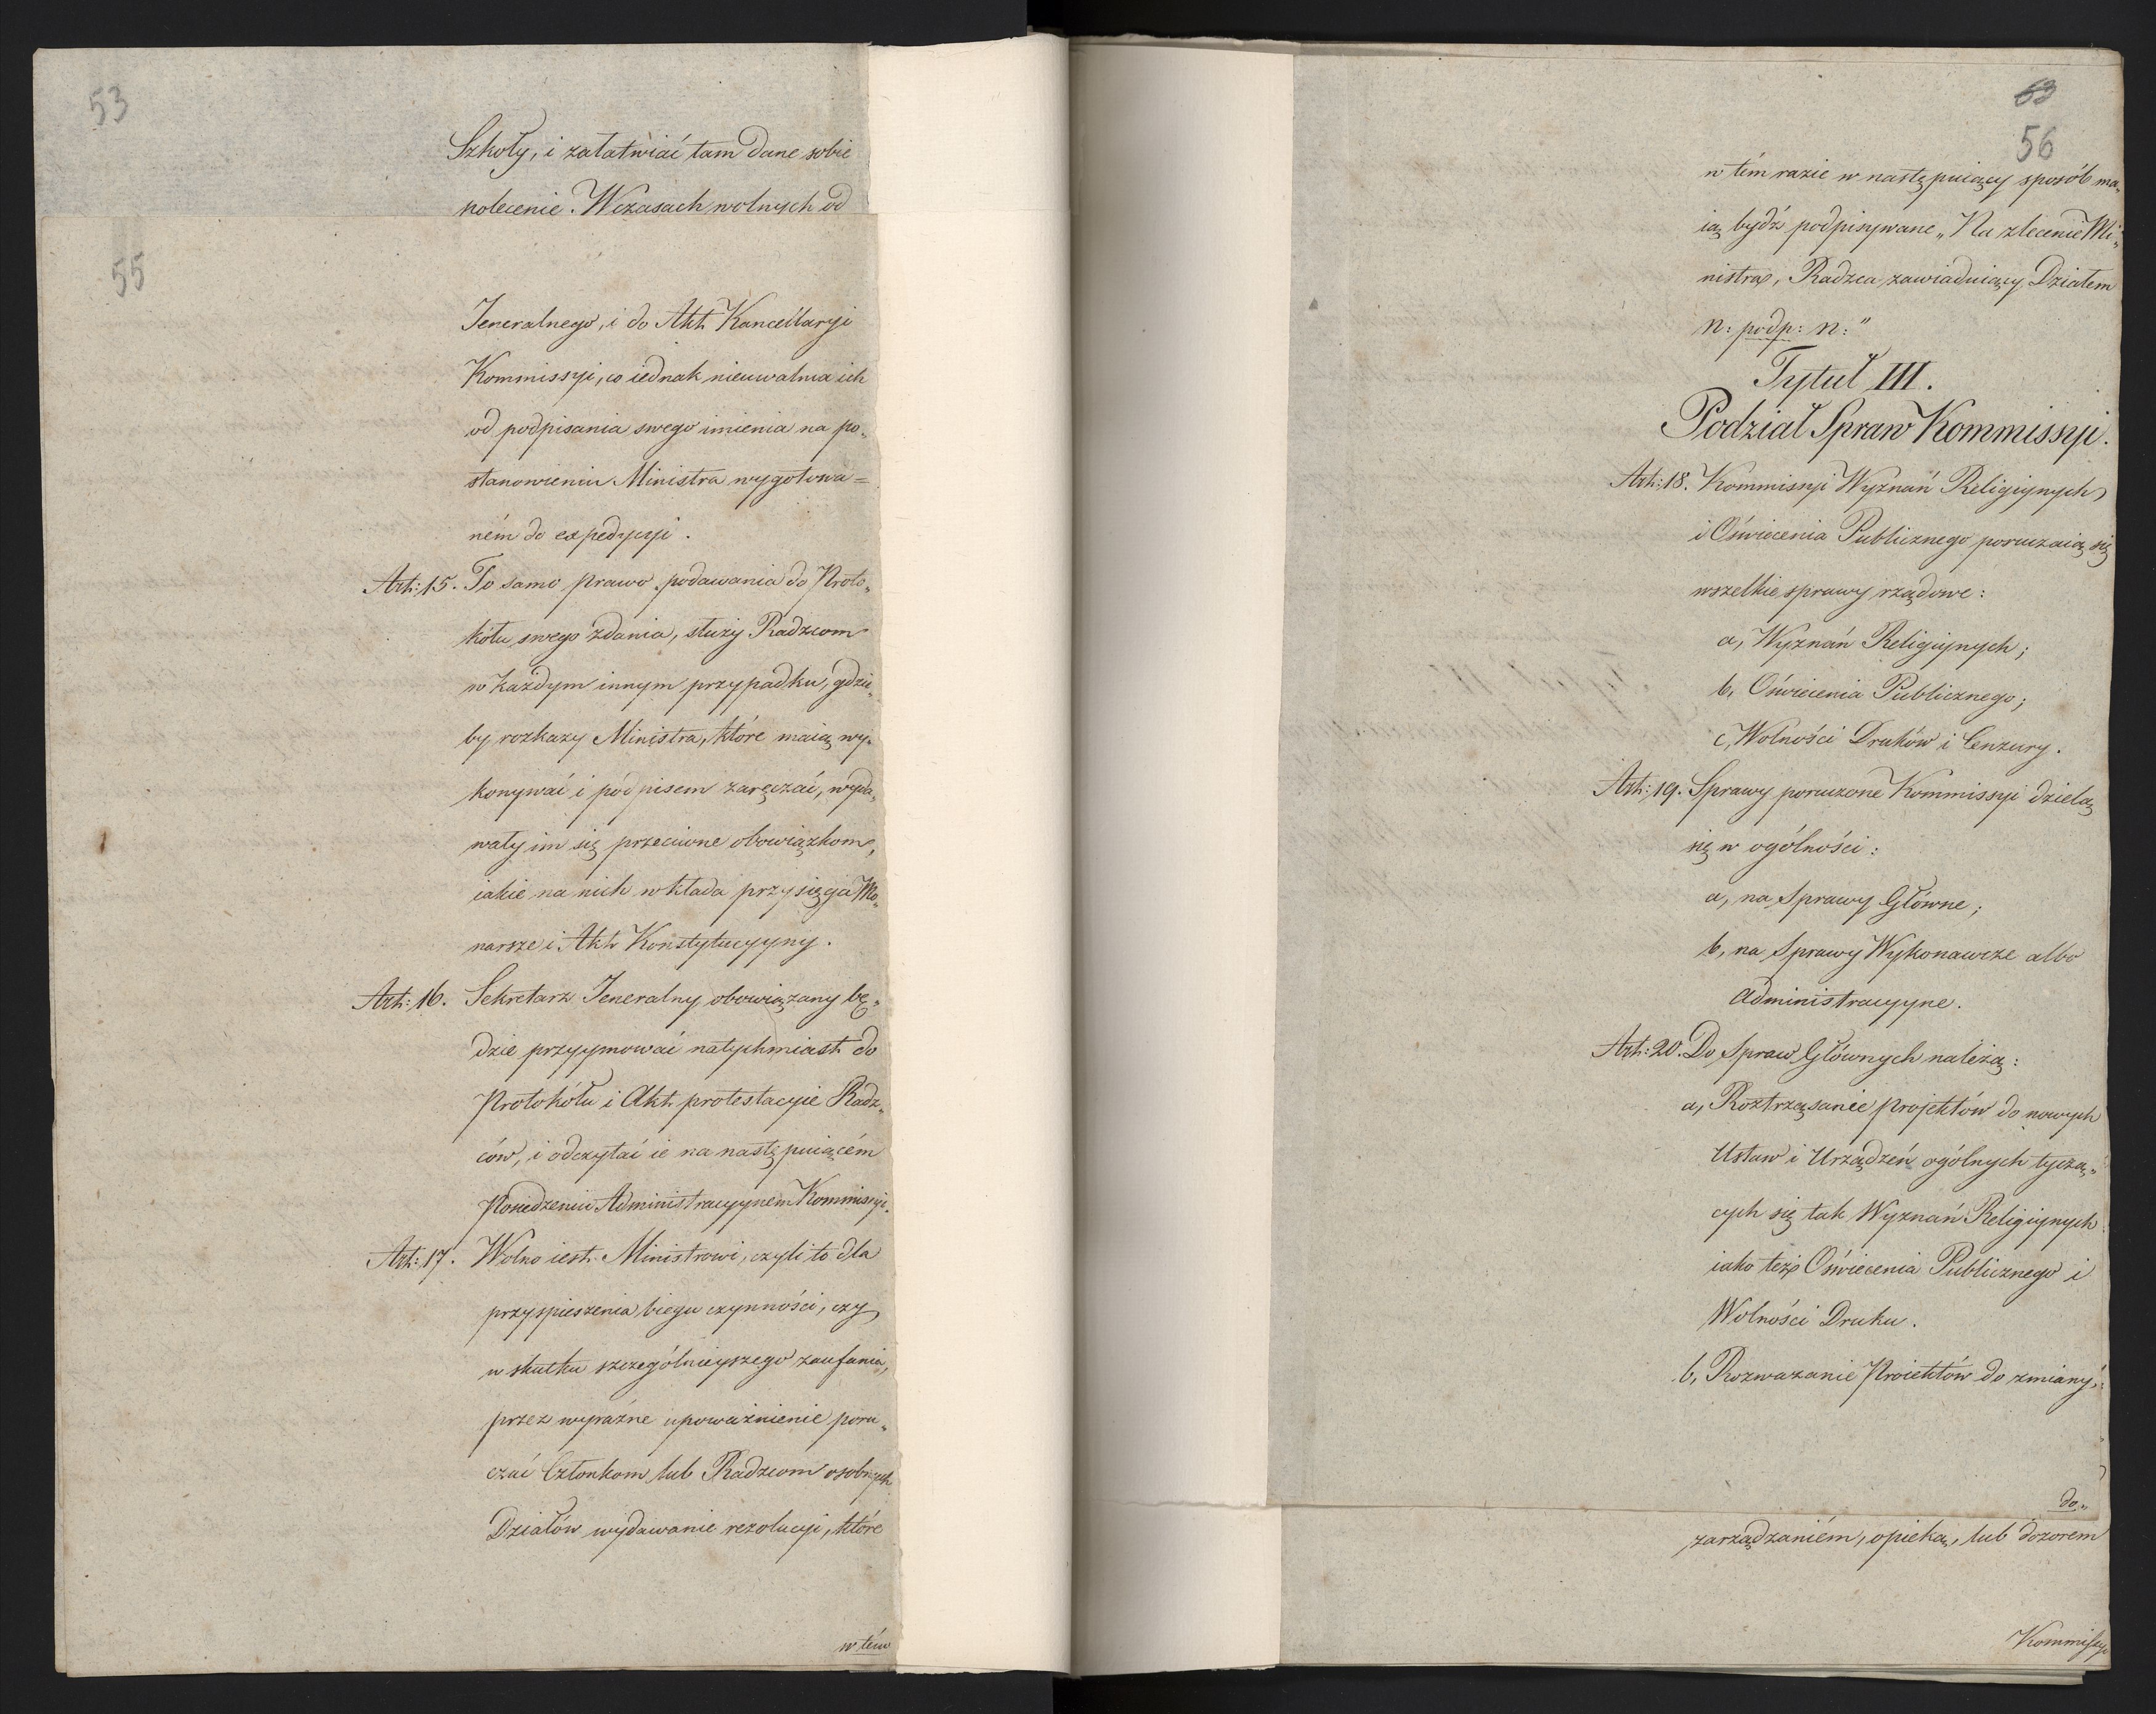 53
Szkoły, i załatwiać tam dane sobie
polecenie. W czasach wolnych od
55
Jeneralnego, i do Akt Kancellaryi
Kommissyi, co iednak nieuwalnia ich
od podpisania swego imienia na po„
stanowieniu Ministra wygotowa=
ném do expedycyi.
Art: 15. To samo prawo podawania do Proto„
kółu swego zdania, służy Radzcom
w każdym innym przypadku, gdzie„
by rozkazy Ministra, które maią wy„
konywać i podpisem zaręczać, wyda„
wały im się przeciwne obowiązkom,
iakie na nich wkłada przysięga Mo„
narsze i Akt Konstytucyyny.
Art: 16. Sekretarz Jeneralny obowiązany bę„
dzie przyymować natychmiast do
Protokółu i Akt protestacyie Radz„
ców, i odczytać ie na następuiącém
Posiedzeniu Administracyyném Kommissyi.
Art: 17. Wolno iest Ministrowi, czyli to dla
przyspieszenia biegu czynności, czy
w skutku szczególnieyszego zaufania,
przez wyraźne upoważnienie poru„
czać Członkom lub Radzcom osobnych
Działów wydawanie rezolucyi, które
w tém
63
56
w tém razie w następuiący sposób ma„
ią bydź podpisywane „Na zlecenie Mi„
nistra, Radzca zawiaduiący Działem
N: podp: N:"
Tytuł III.
Podział Spraw Kommissyi.
Art: 18. Kommissyi Wyznań Religiynych
i Oświecenia Publicznego poruczaią się
wszelkie sprawy rządowe:
a, Wyznań Religiynych;
b, Oświecenia Publicznego;
c, Wolności Druków i Cenzury.
Art: 19. Sprawy poruczone Kommissyi dzielą
się w ogólności:
a, na Sprawy Główne;
b, na Sprawy Wykonawcze albo
Administracyyne.
Art: 20. Do Spraw Głównych należą:
a, Roztrząsanie projektów do nowych
Ustaw i Urządzeń ogólnych tyczą„
cych się tak Wyznań Religiynych
iako też Oświecenia Publicznego i
Wolności Druku.
b, Rozważanie Proiektów do zmiany,
do„
zarządzaniém, opieką, lub dozorem
Kommissyi